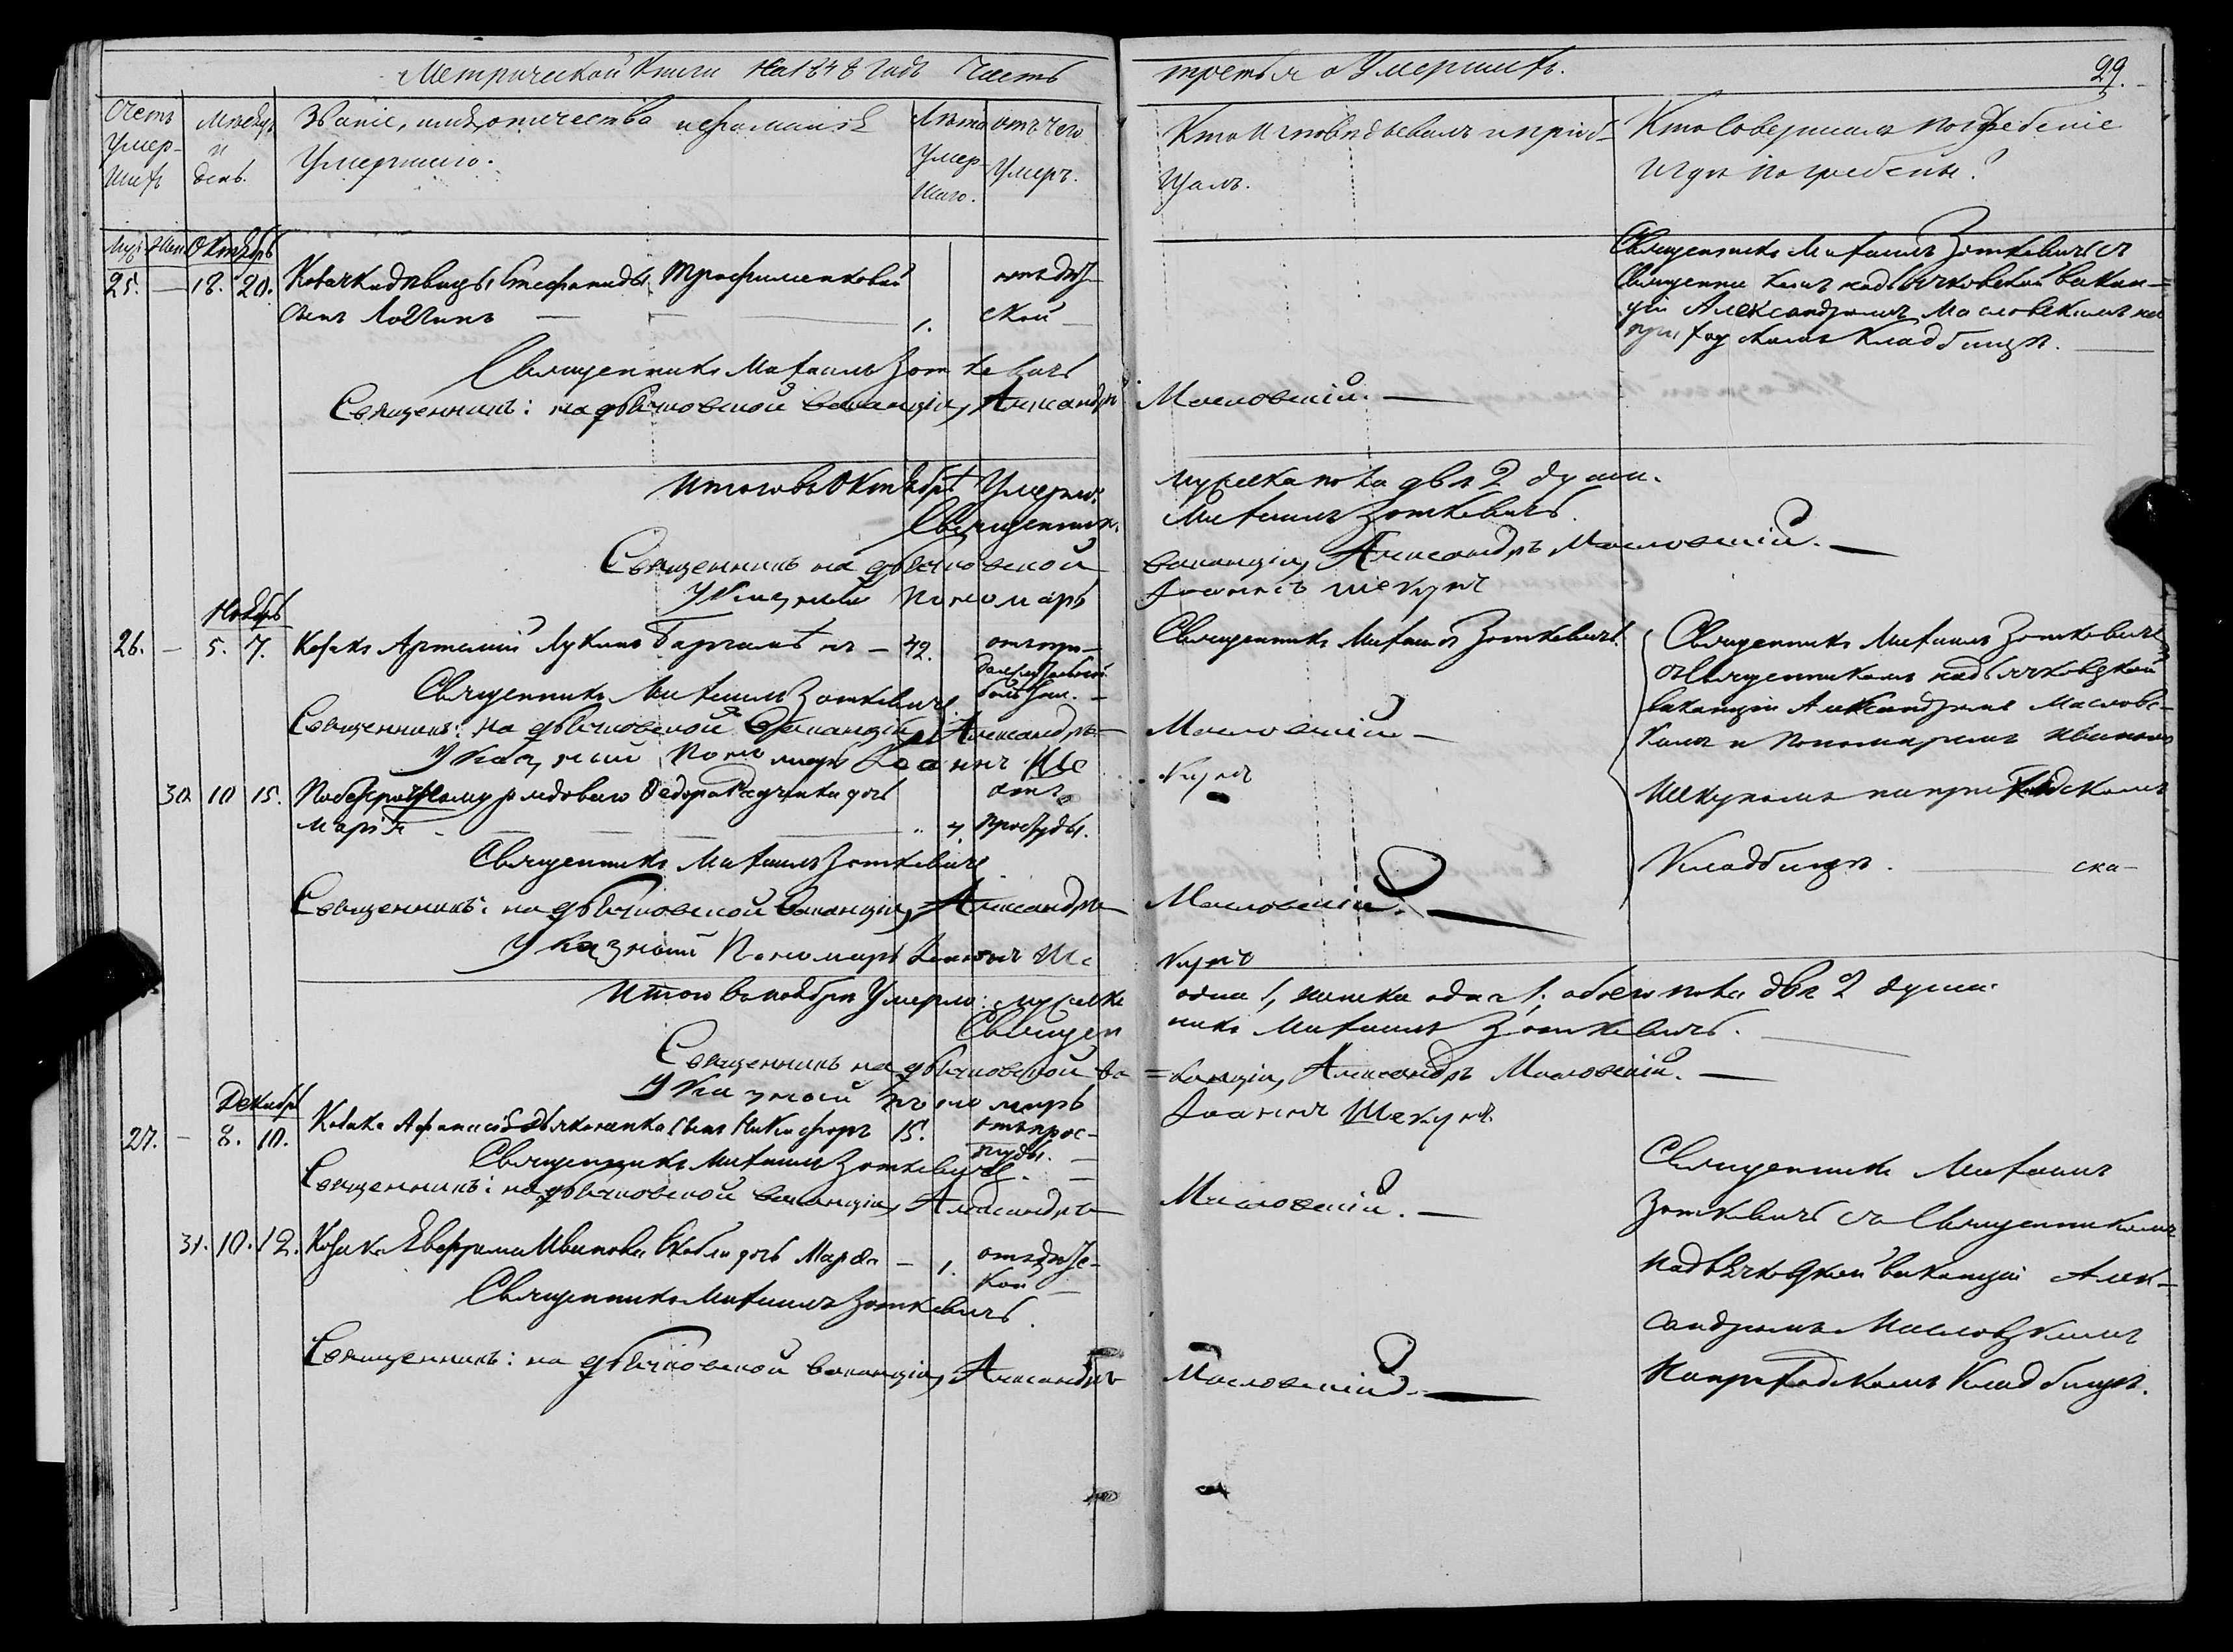 Метрической Книги на 1848 Годъ Часть третья о Умершихъ.
29.
Счетъ Умер-шихъ
Месяцъ и день.
Званіе, имя, отчество и фамилія Умершаго.
Лѣта Умер-шаго.
отъ чего Умеръ.
Кто Исповѣдывалъ и пріоб-щалъ.
Кто Совершалъ погребеніе и гдѣ погребены?
Муж. Жен. Октябрь
25. — 18. 20. Козачки дѣвицы Стефаниды Трофименковой
сынъ Логгинъ — — 1.
отъ дѣт-
ской —
Священникъ Михаилъ Зоткевичъ съ
Священникомъ на дьячковской вакан=
ціи Александромъ Масловскимъ на
приходскомъ Кладбищѣ.
Священникъ Михаилъ Зоткевичъ
Священникъ: на дьячковской вакансіи, Александръ Масловскій.
Итого въ Октябрѣ Умерло: мужеска пола двѣ 2 души.
Священникъ Михаилъ Зоткевичъ.
Священникъ на дьячковской вакансіи, Александръ Масловскій.
Указный Пономарь Іоаннъ Шекунъ
Ноябрь
26. — 5. 7. Козакъ Артемий Лукинъ — 42.
отъ
болезни. —
Священникъ Михаилъ Зоткевичъ.
Священникъ Михаилъ Зоткевичъ
съ Священникомъ на дьячковской
вакансіи Александромъ Масловс-
кимъ и Пономаремъ Иваномъ
Шекуномъ на приходскомъ
Кладбищѣ.
Священникъ Михаилъ Зоткевичъ
Священникъ: на дьячковской Вакансіи, Александръ Масловскій —
Указный Пономарь Іоаннъ Шекунъ
30. 10 15. рядоваго Федора дочь
Марія — 4
отъ
простуды.
Священникъ Михаилъ Зоткевичъ
Священникъ: на дьячковской Вакансіи, Александръ Масловскій.
Указный Пономарь Іоаннъ Шекунъ
Итого въ ноябрѣ Умерло: мужеска одна 1, женска одна 1; обоего пола двѣ 2 души.
Священникъ Михаилъ Зоткевичъ.
Священникъ на дьячковской ва=кансіи, Александръ Масловскій.
Указный пономарь Іоаннъ Шекунъ.
Декабрь
27. — 8. 10. Козака Афанасія сынъ Никифоръ 15.
отъ прос-
туды. —
Священникъ Михаилъ
Зоткевичъ съ Священникомъ
на дьячковской вакансіи Алек-
сандромъ Масловскимъ
на приходскомъ Кладбищѣ.
Священникъ Михаилъ Зоткевичъ.
Священникъ: на дьячковской вакансіи, Александръ Масловскій.
31. 10. 12. Козака Евфрема Иванова дочь Марѳа — 1.
отъ дѣтс-
кой —
Священникъ Михаилъ Зоткевичъ.
Священникъ: на дьячковской вакансіи, Александръ Масловскій.